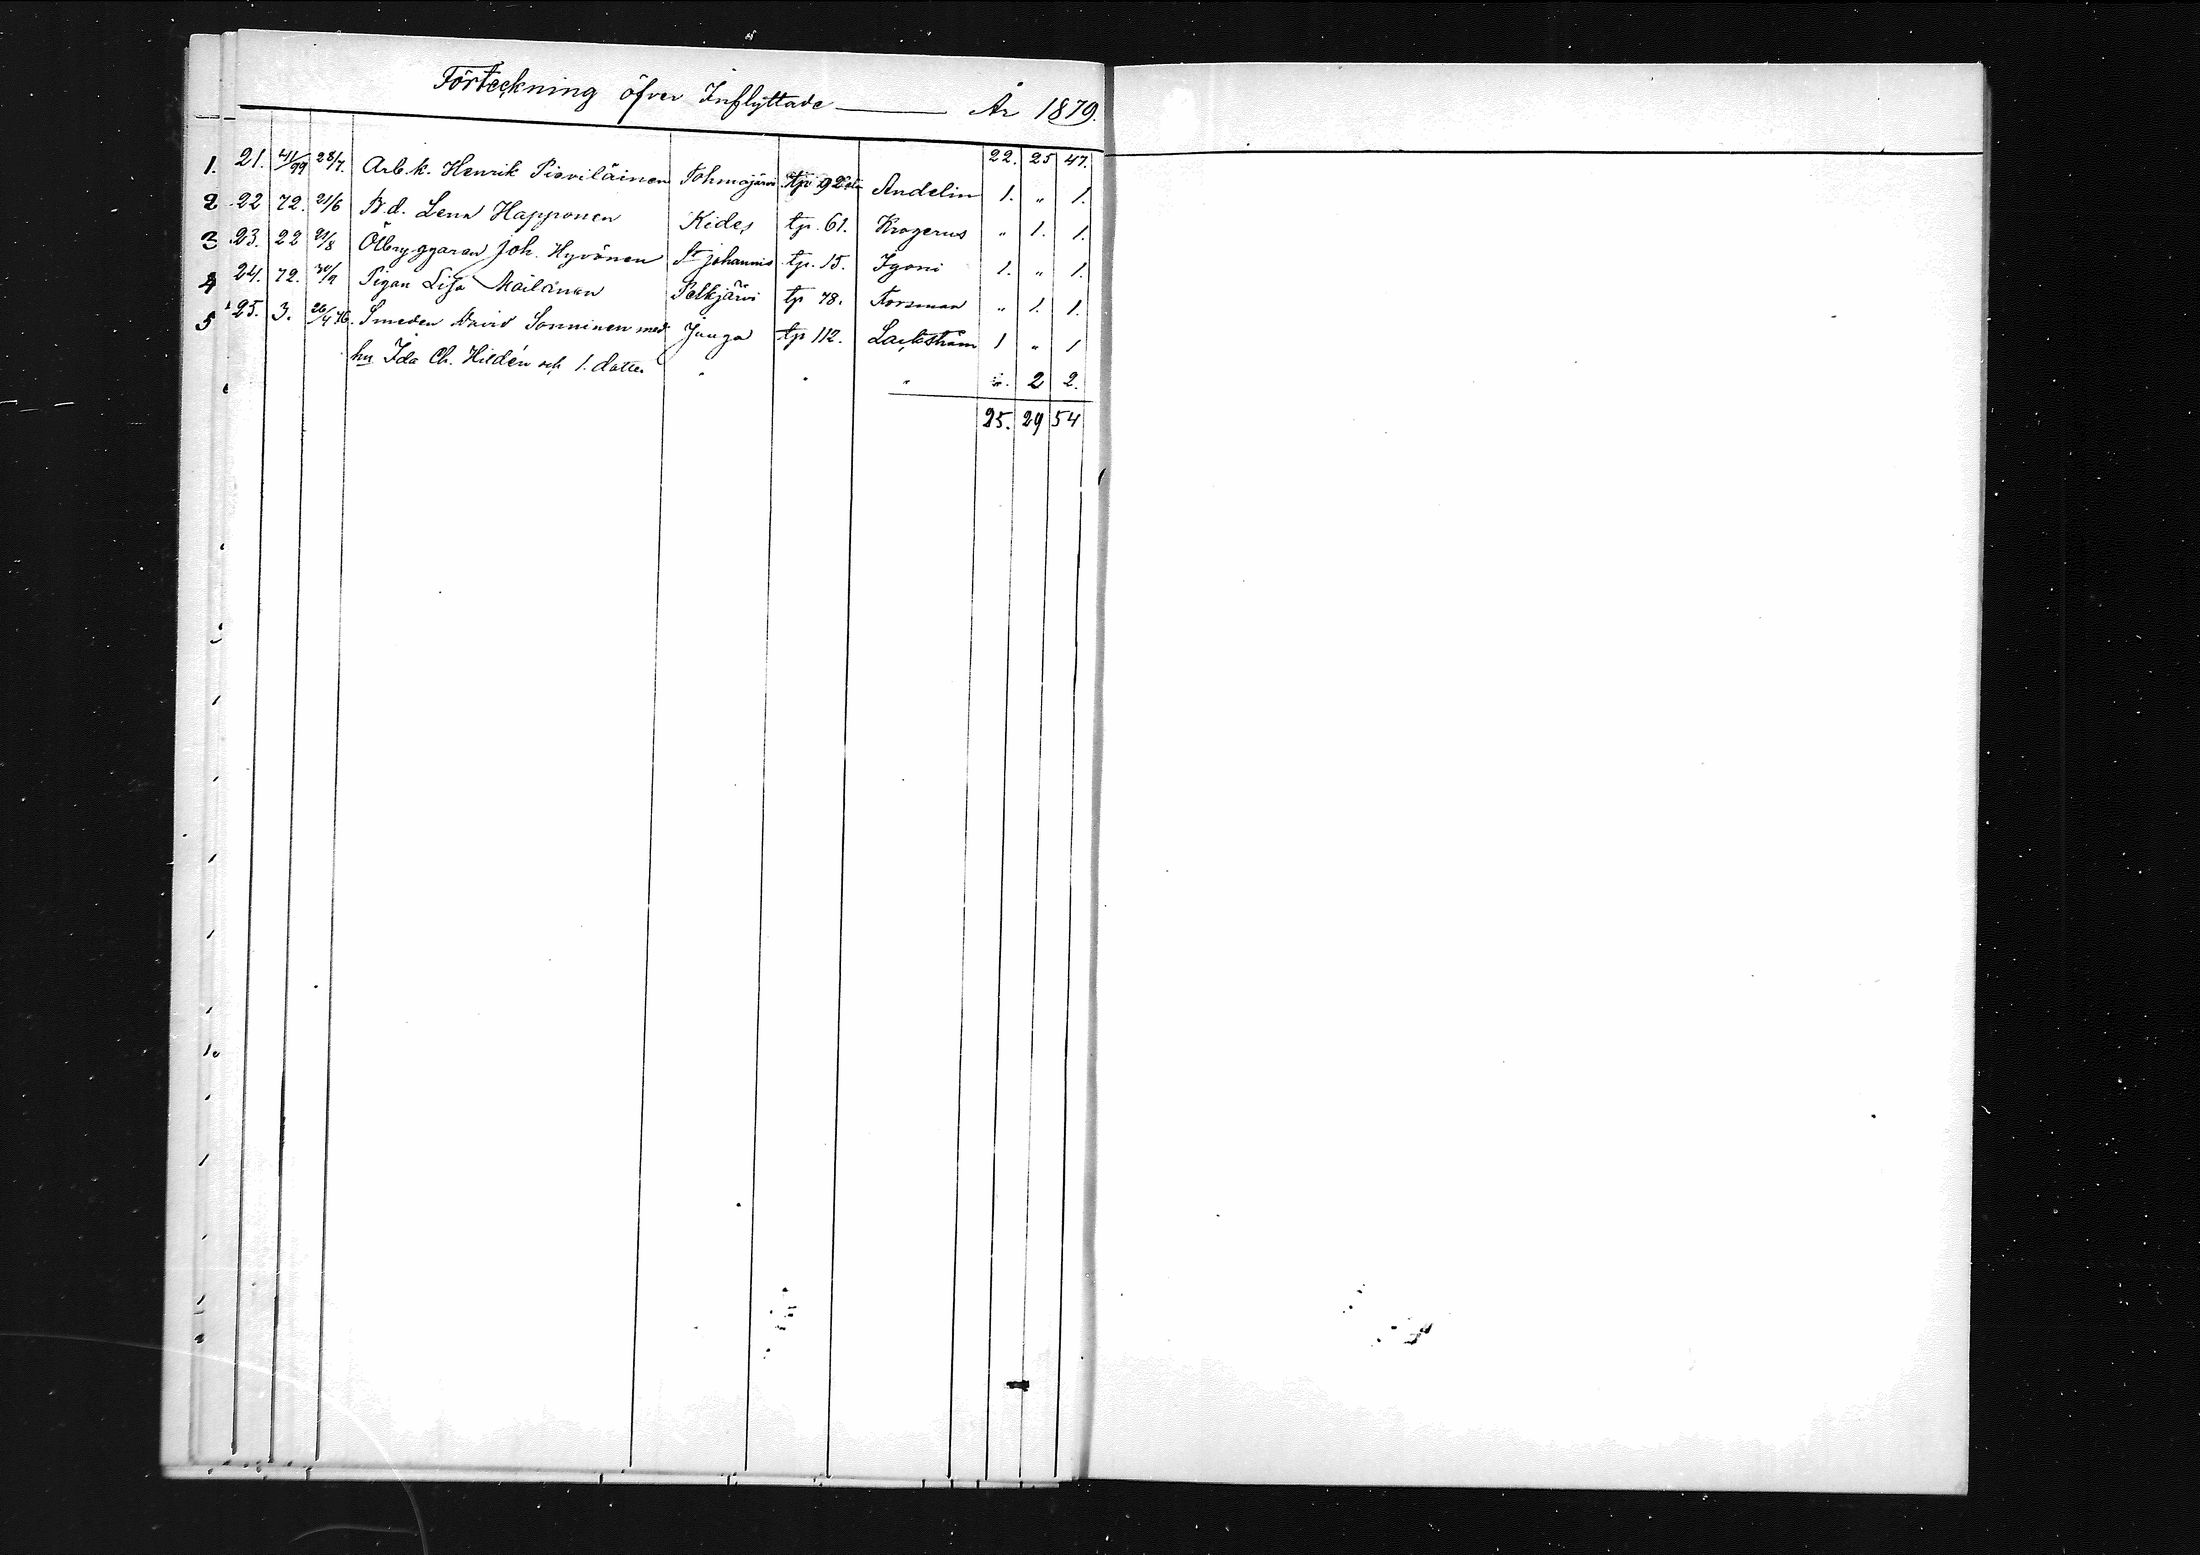 Förteckning öfver Inflyttade — År 1879.
22. 25 47.
1. 21. 41/99 28/7. Arb.k. Henrik Pieviläinen Tohmajärvi tp 92 Andelin 1. " 1.
2 22 72. 21/6 B.d. Lena Happonen Kides tp. 61. Krogerus " 1. 1.
3 23. 22 21/8 Ölbryggaren Joh. Hyvönen St Johannis tp. 15. Ignoni 1. " 1.
4 24. 72. 30/9 Pigan Lisa Mailanen Pelkjärvi tp 78. Forsman " 1. 1.
5 25. 3. 26/4 76. Smeden David Sonninen med Juuga tp 112. Lackström 1 " 1
hu Ida Ch. Hildén och 1. dotter " " " " 2 2.
25. 29 54